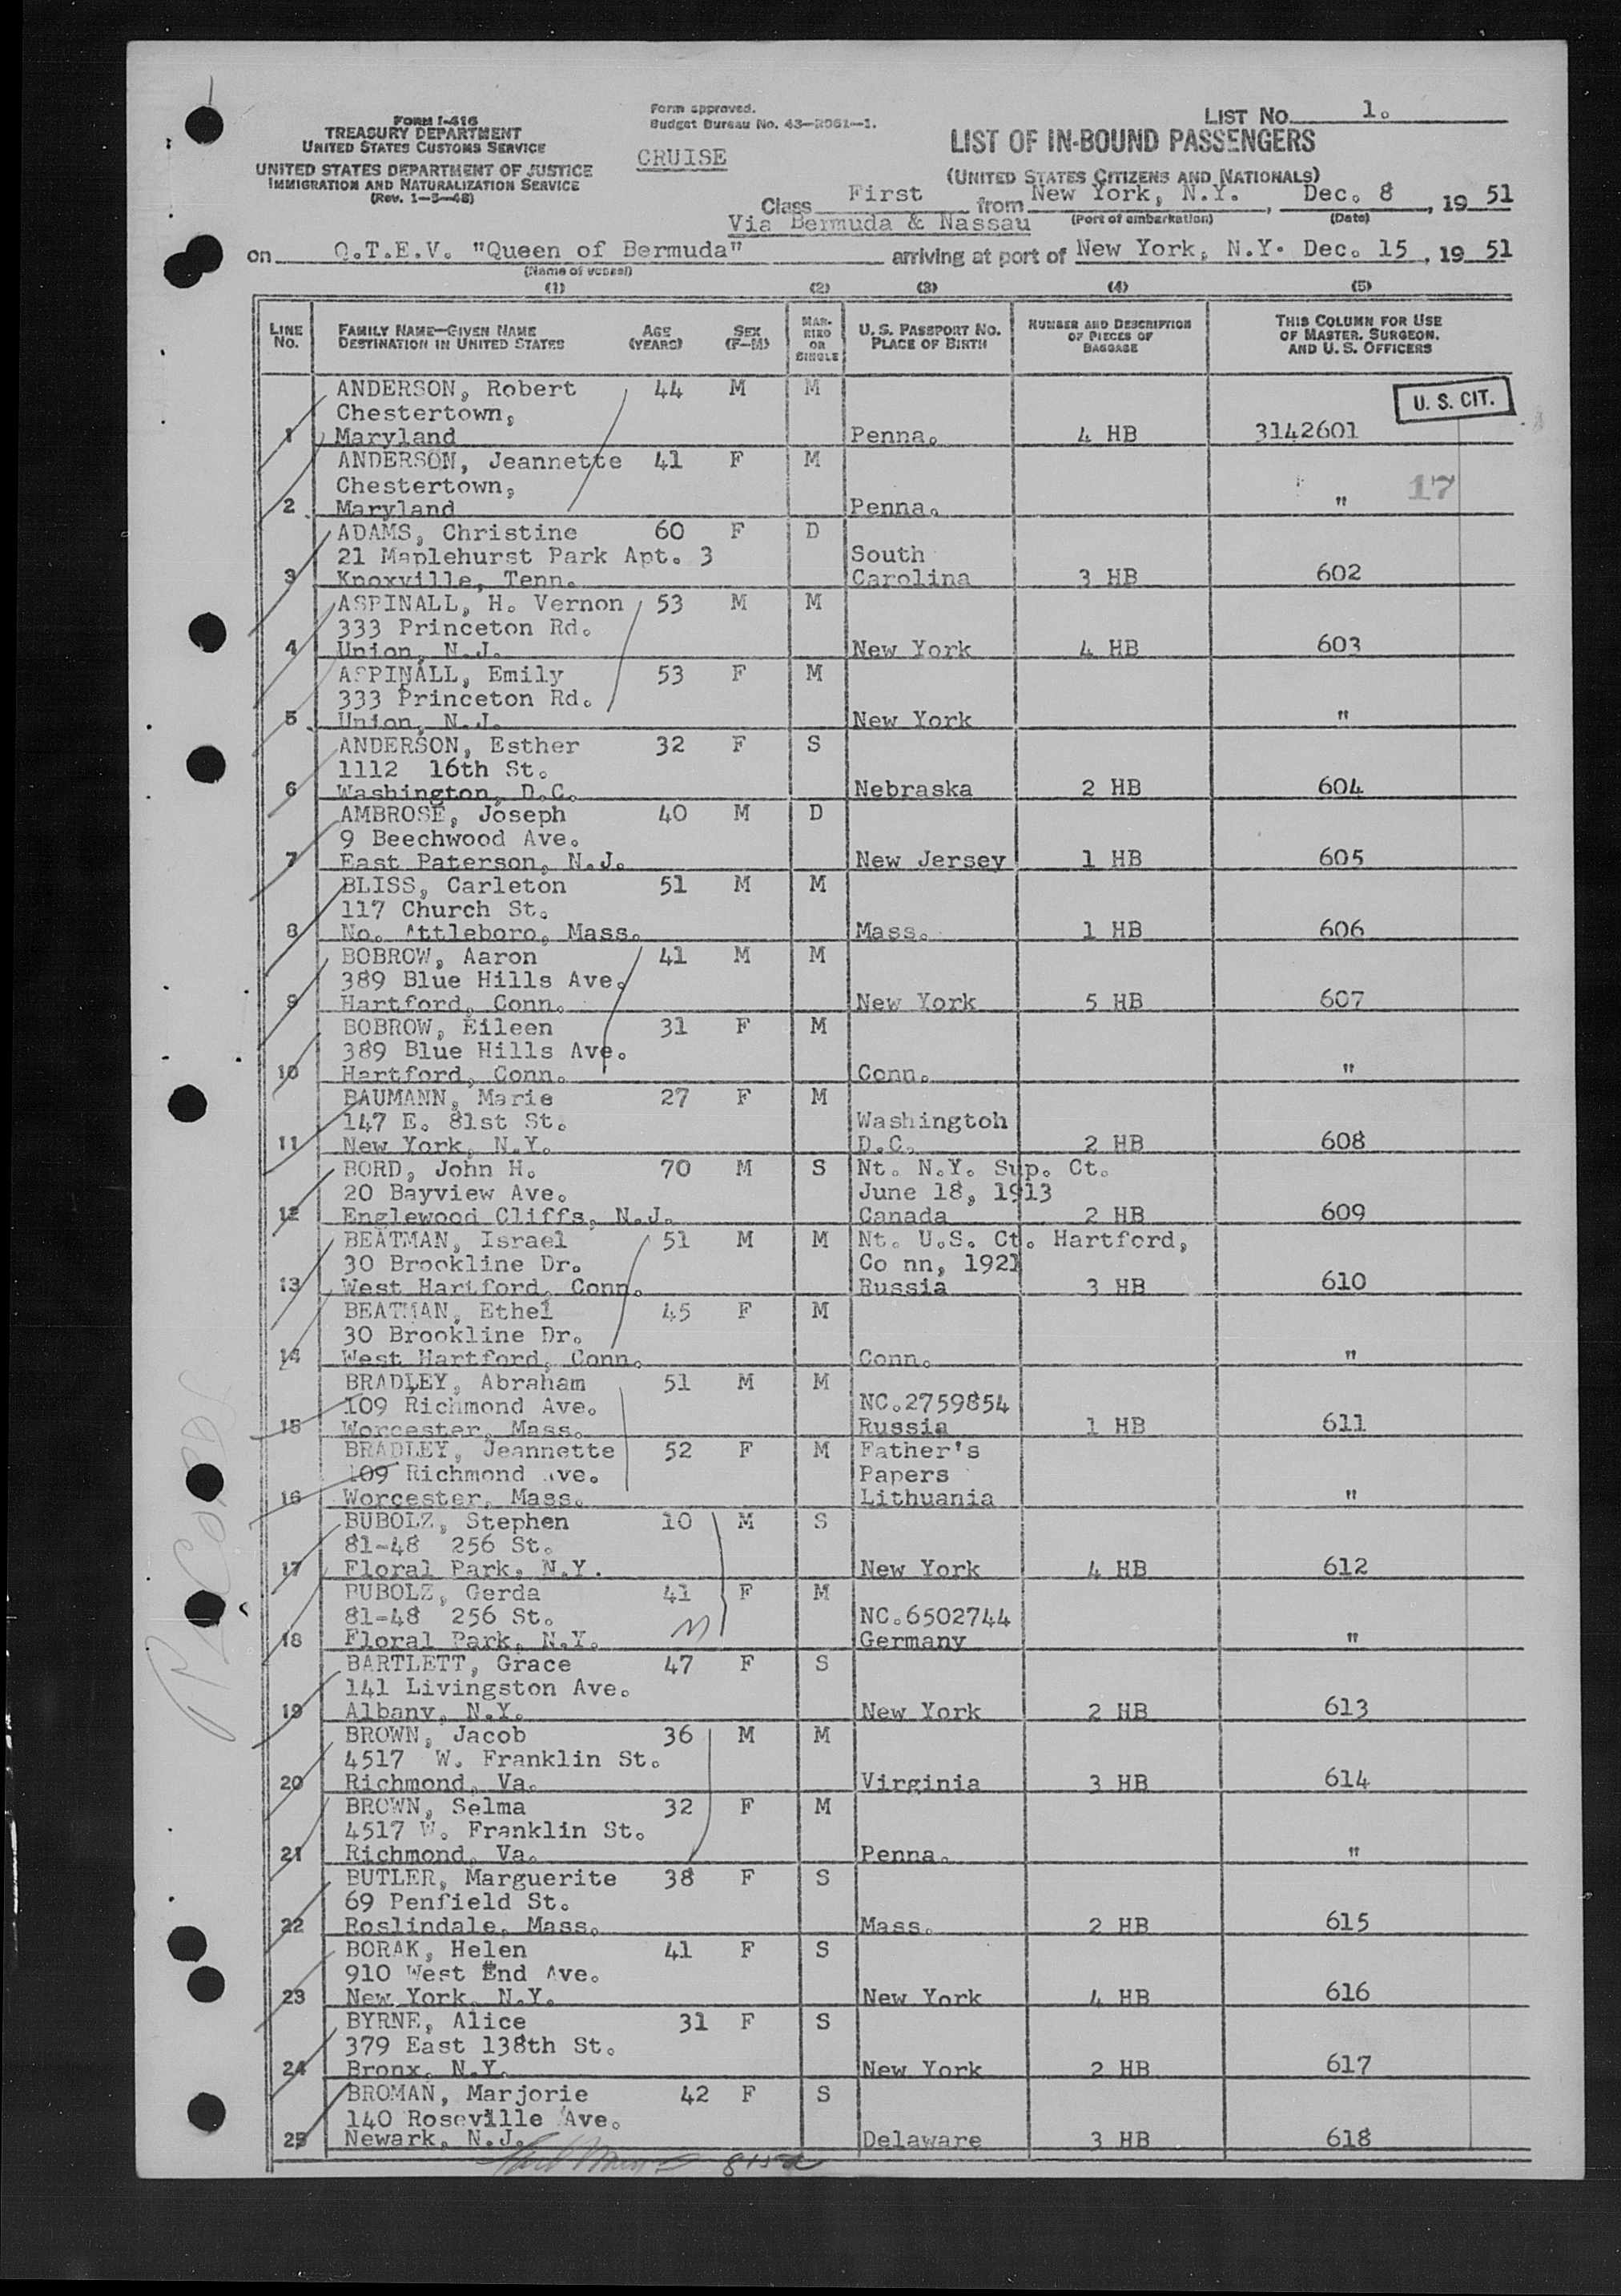 FORM I-416
TREASURY DEPARTMENT
UNITED STATES CUSTOMS SERVICE
UNITED STATES DEPARTMENT OF JUSTICE
IMMIGRATION AND NATURALIZATION SERVICE
(Rev. 1-5-48)
Form approved.
Budget Bureau No. 43-R061-1.
CRUISE
LIST NO. 1.
LIST OF IN-BOUND PASSENGERS
(UNITED STATES CITIZENS AND NATIONALS)
Class First from New York, N.Y., Dec. 8, 1951
(Port of embarkation) (Date)
Via Bermuda & Nassau
on Q.T.E.V. "Queen of Bermuda" arriving at port of New York, N.Y. Dec. 15, 1951
(Name of vessel)
(1) (2) (3) (4) (5)
LINE NO. FAMILY NAME—GIVEN NAME DESTINATION IN UNITED STATES AGE (YEARS) SEX (F-M) MARRIED OR SINGLE U. S. PASSPORT NO. PLACE OF BIRTH NUMBER AND DESCRIPTION OF PIECES OF BAGGAGE THIS COLUMN FOR USE OF MASTER, SURGEON, AND U. S. OFFICERS
ANDERSON, Robert 44 M M
U. S. CIT.
Chestertown,
1 Maryland Penna. 4 HB 3142601
ANDERSON, Jeannette 41 F M
Chestertown, 17
2 Maryland Penna. "
ADAMS, Christine 60 F D
21 Maplehurst Park Apt. 3 South
3 Knoxville, Tenn. Carolina 3 HB 602
ASPINALL, H. Vernon 53 M M
333 Princeton Rd.
4 Union, N.J. New York 4 HB 603
ASPINALL, Emily 53 F M
333 Princeton Rd.
5 Union, N.J. New York "
ANDERSON, Esther 32 F S
1112 16th St.
6 Washington, D.C. Nebraska 2 HB 604
AMBROSE, Joseph 40 M D
9 Beechwood Ave.
7 East Paterson, N.J. New Jersey 1 HB 605
BLISS, Carleton 51 M M
117 Church St.
8 No. Attleboro, Mass. Mass. 1 HB 606
BOBROW, Aaron 41 M M
389 Blue Hills Ave.
9 Hartford, Conn. New York 5 HB 607
BOBROW, Eileen 31 F M
389 Blue Hills Ave.
10 Hartford, Conn. Conn. "
BAUMANN, Marie 27 F M
147 E. 81st St. Washingtoh
11 New York, N.Y. D.C. 2 HB 608
BORD, John H. 70 M S Nt. N.Y. Sup. Ct.
20 Bayview Ave. June 18, 1913
12 Englewood Cliffs, N.J. Canada 2 HB 609
BEATMAN, Israel 51 M M Nt. U.S. Ct. Hartford,
30 Brookline Dr. Co nn, 1921
13 West Hartford, Conn. Russia 3 HB 610
BEATMAN, Ethel 45 F M
30 Brookline Dr.
14 West Hartford, Conn. Conn. "
BRADLEY, Abraham 51 M M
109 Richmond Ave. NC.2759854
15 Worcester, Mass. Russia 1 HB 611
BRADLEY, Jeannette 52 F M Father's
109 Richmond Ave. Papers
16 Worcester, Mass. Lithuania "
BUBOLZ, Stephen 10 M S
81-48 256 St.
17 Floral Park, N.Y. New York 4 HB 612
BUBOLZ, Gerda 41 F M
81-48 256 St. NC.6502744
18 Floral Park, N.Y. Germany "
BARTLETT, Grace 47 F S
141 Livingston Ave.
19 Albany, N.Y. New York 2 HB 613
BROWN, Jacob 36 M M
4517 W. Franklin St.
20 Richmond, Va. Virginia 3 HB 614
BROWN, Selma 32 F M
4517 W. Franklin St.
21 Richmond, Va. Penna. "
BUTLER, Marguerite 38 F S
69 Penfield St.
22 Roslindale, Mass. Mass. 2 HB 615
BORAK, Helen 41 F S
910 West End Ave.
23 New York, N.Y. New York 4 HB 616
BYRNE, Alice 31 F S
379 East 138th St.
24 Bronx, N.Y. New York 2 HB 617
BROMAN, Marjorie 42 F S
140 Roseville Ave.
25 Newark, N.J. Delaware 3 HB 618